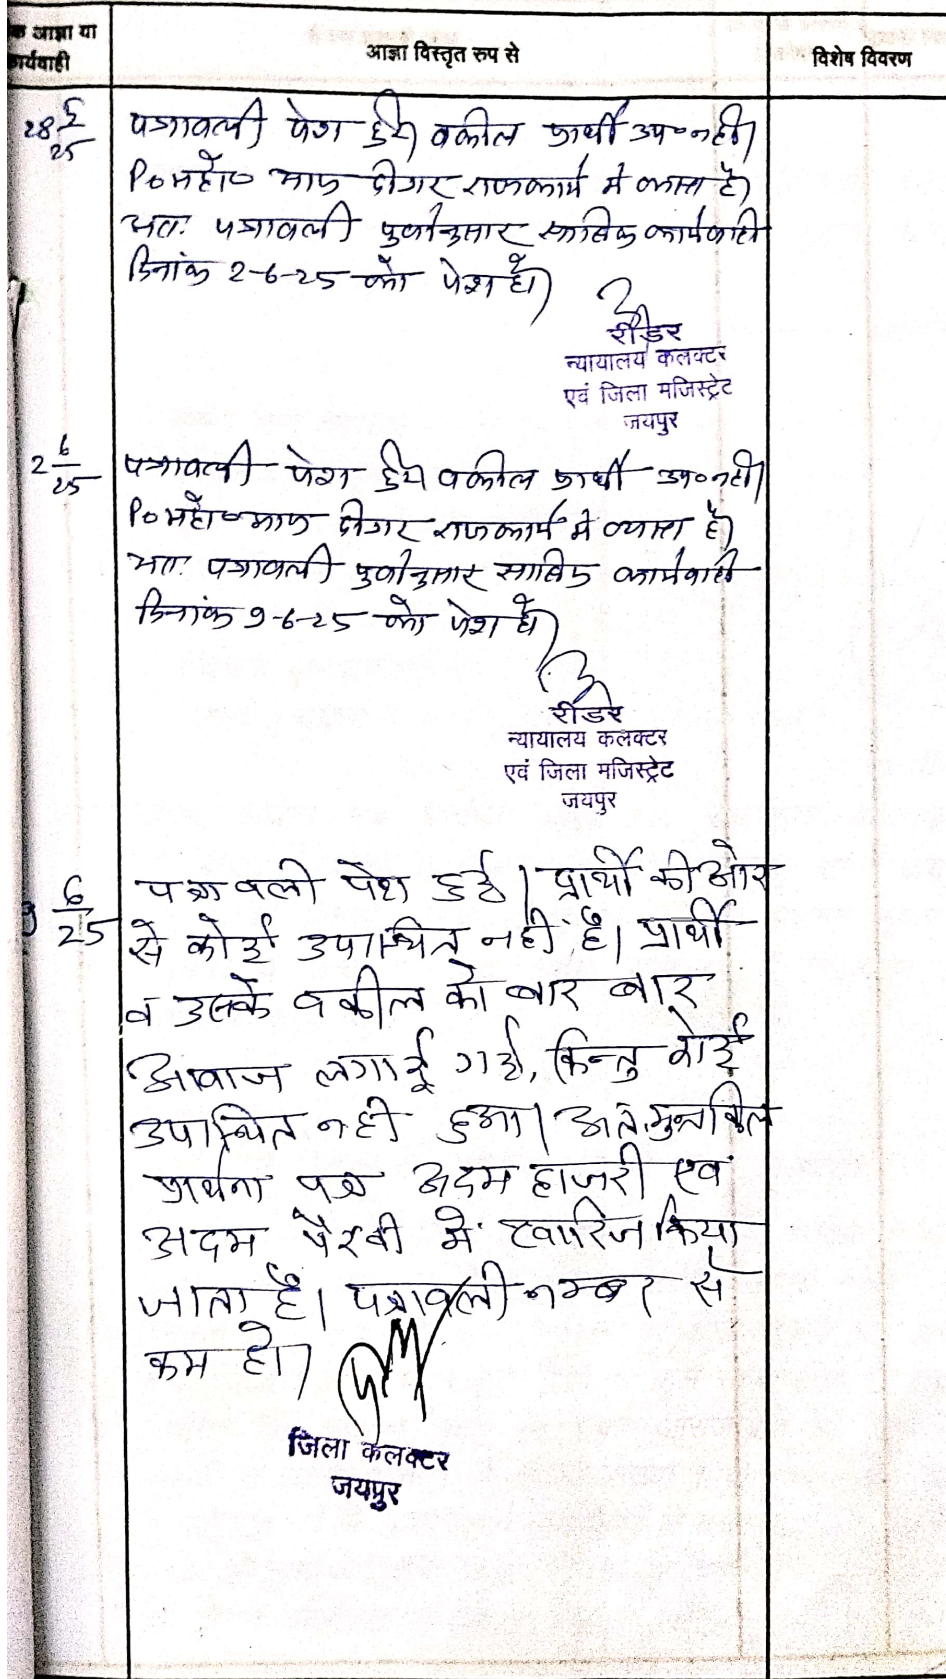 क आज्ञा या
कार्यवाही
आज्ञा विस्तृत रुप से
विशेष विवरण
28 5/25
पत्रावली पेश हुयी वकील प्रार्थी उप० नही।
P० महो० आफ दीगर राजकार्य मे व्यस्त है।
अतः पत्रावली पुर्वानुसार साबिक कार्यवाही
दिनांक 2-6-25 को पेश हो।
रीडर
न्यायालय कलक्टर
एवं जिला मजिस्ट्रेट
जयपुर
2 6/25
पत्रावली पेश हुयी वकील प्रार्थी उप० नही।
P० महो० आफ दीगर राजकार्य मे व्यस्त है।
अतः पत्रावली पुर्वानुसार साबिक कार्यवाही
दिनांक 9-6-25 को पेश हो।
रीडर
न्यायालय कलक्टर
एवं जिला मजिस्ट्रेट
जयपुर
9 6/25
पत्रावली पेश हुई। प्रार्थी की ओर
से कोई उपस्थित नहीं है। प्रार्थी
व उसके वकील को बार बार
आवाज लगाई गई, किन्तु कोई
उपस्थित नही हुआ। अतः मुन्तकिल
प्रार्थना पत्र अदम हाजरी एवं
अदम पैरवी में खारिज किया
जाता है। पत्रावली नम्बर से
कम हो।
जिला कलक्टर
जयपुर